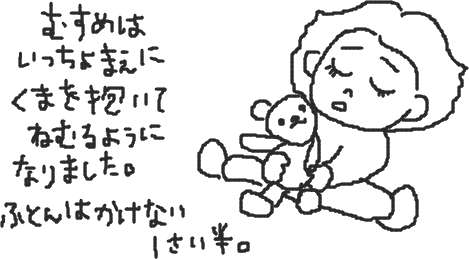 むすめは
いっちょまえに
くまを抱いて
ねむるように
なりました。
ふとんはかけない
1さい半。